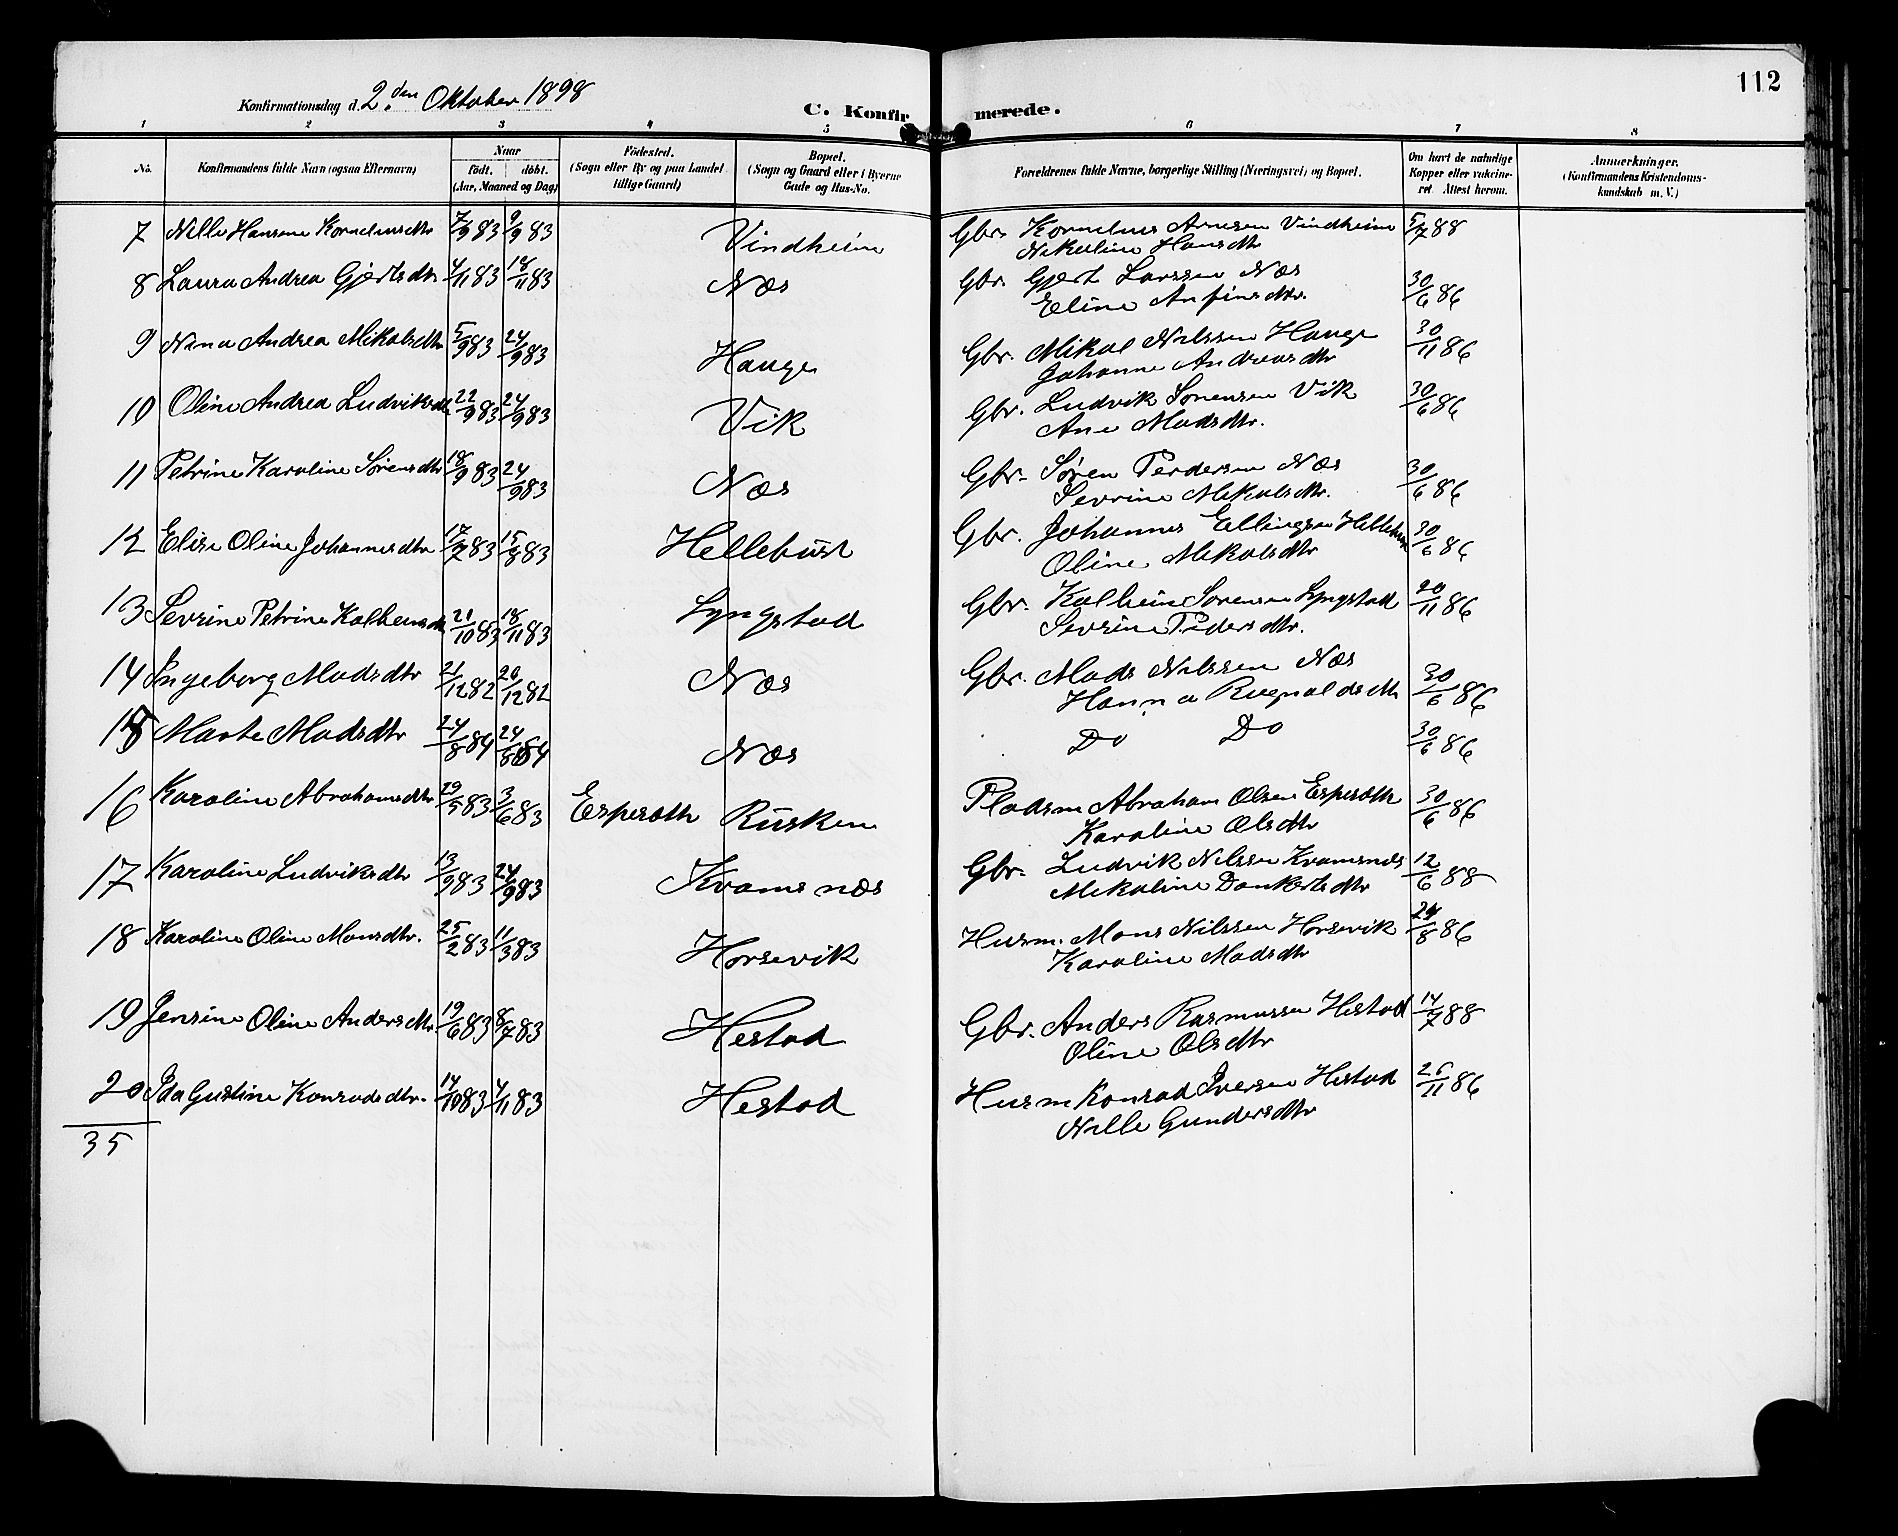 112
Konfirmationsdag d. 2. den Oktober 1898
C. Konfirmerede.
1 2 3 4 5 6 7 8
No. Konfirmandens fulde Navn (ogsaa Efternavn)
Naar født. døbt. (Aar, Maaned og Dag)
Fødested. (Sogn eller By og paa Landet tillige Gaard)
Bopæl. (Sogn og Gaard eller i Byerne Gade og Hus-No.
Forældrenes fulde Navne, borgerlige Stilling (Næringsvei) og Bopæl.
Om havt de naturlige Kopper eller vakcineret. Attest herom.
Anmerkninger. (Konfirmandens Kristendomskundskab m. V.)
7 Nille Hansine Korneliusdtr 7/9 83 9/9 83 Vindheim Gbr. Kornelius Arnesen Vindheim 5/7 88
Nikoline Hansdtr
8 Laura Andrea Gjertsdtr 4/11 83 18/11 83 Næs Gbr. Gjert Larssen Næs 30/6 86
Eline Anfinsdtr.
9 Nina Andrea Mikalsdtr 5/9 83 24/9 83 Hauge Gbr. Mikal Nilssen Hauge 30/11 86
Johanne Andreasdtr
10 Oline Andrea Ludviksdtr 22/9 83 24/9 83 Vik Gbr. Ludvik Sørensen Vik 30/6 86
Ane Madsdtr.
11 Petrine Karoline Sørensdtr 18/9 83 24/9 83 Næs Gbr. Søren Perdersen Næs 30/6 86
Sevrine Mikalsdtr.
12 Elise Oline Johannesdtr 17/7 83 15/8 83 Hellebust Gbr. Johannes Ellingsen Hellebust 30/6 86
Oline Mikalsdtr
13 Sevrine Petrine Kolbensdtr 21/10 83 18/11 83 Lyngstad Gbr. Kolbein Sørensen Lyngstad 20/11 86
Sevrine Pedersdtr.
14 Ingeborg Madsdtr 21/12 82 20/12 82 Næs Gbr. Mads Nilssen Næs 30/6 86
Hanna Ragnaldsdtr
15 Marte Madsdtr 24/8 84 24/8 84 Næs Do Do 30/6 86
16 Karoline Abrahamsdtr 29/5 83 3/6 83 Esperøth Rusken Pladsm Abraham Olsen Esperøth 30/6 86
Karoline Olsdtr
17 Karoline Ludviksdtr 13/9 83 24/9 83 Kvamsnæs Gbr. Ludvik Nilssen Kvamsnæs 12/6 88
Mikaline Dankertsdtr
18 Karoline Oline Monsdtr. 25/2 83 11/3 83 Horsevik Husm. Mons Nilssen Horsevik 24/8 86
Karoline Madsdtr
19 Jensine Oline Andersdtr. 19/6 83 8/7 83 Hestad Gbr. Anders Rasmussen Hestad 14/7 88
Oline Olsdtr
20 Ida Gustine Konradsdtr. 14/10 83 4/11 83 Hestad Husm Konrad Iversen Hestad 26/11 86
Nille Gundersdtr
35